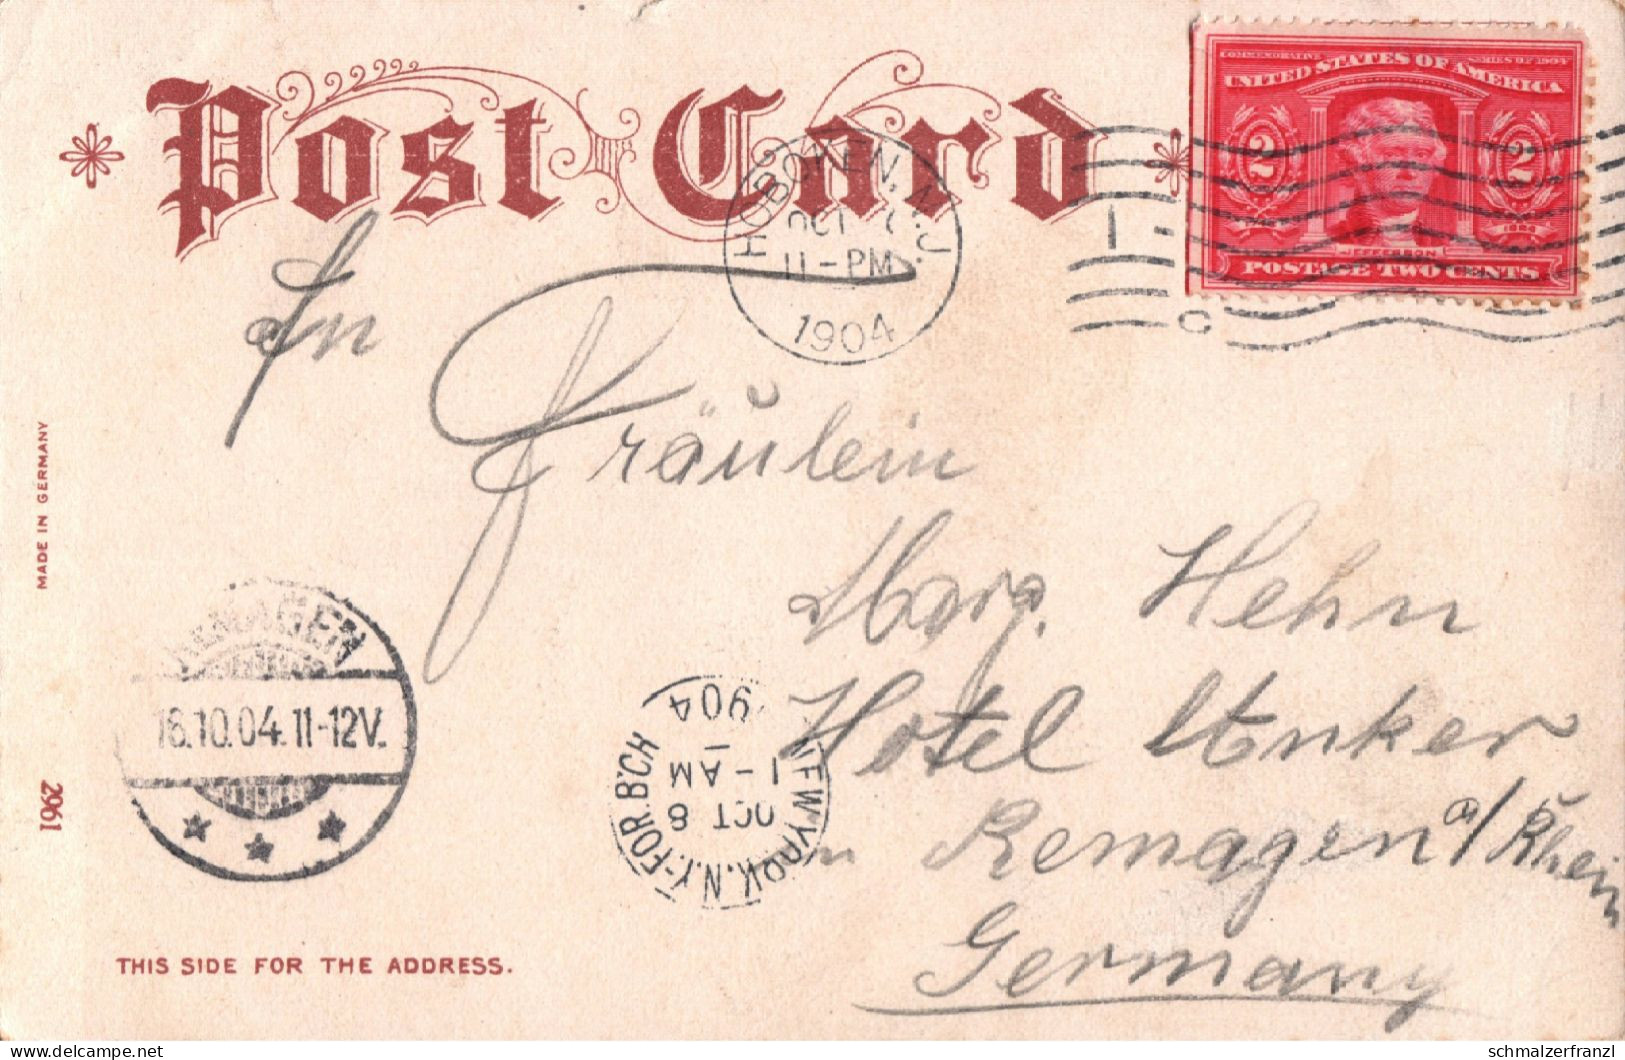 Post Card
COMMEMORATIVE SERIES OF 1904
UNITED STATES OF AMERICA
2 2
JEFFERSON
POSTAGE TWO CENTS
HOBOKEN, N.J.
OCT
11-PM
1904
1
C
An
Fräulein
Marg. Hehn
Hotel Anker
in Remagen a/Rhein
Germany
MADE IN GERMANY
REMAGEN
16.10.04.11-12V.
NEW YORK, N.Y. FOR. B'CH
OCT 8
1-AM
1904
2961
THIS SIDE FOR THE ADDRESS.
DELCAMPE.NET
schmalzerfranzl